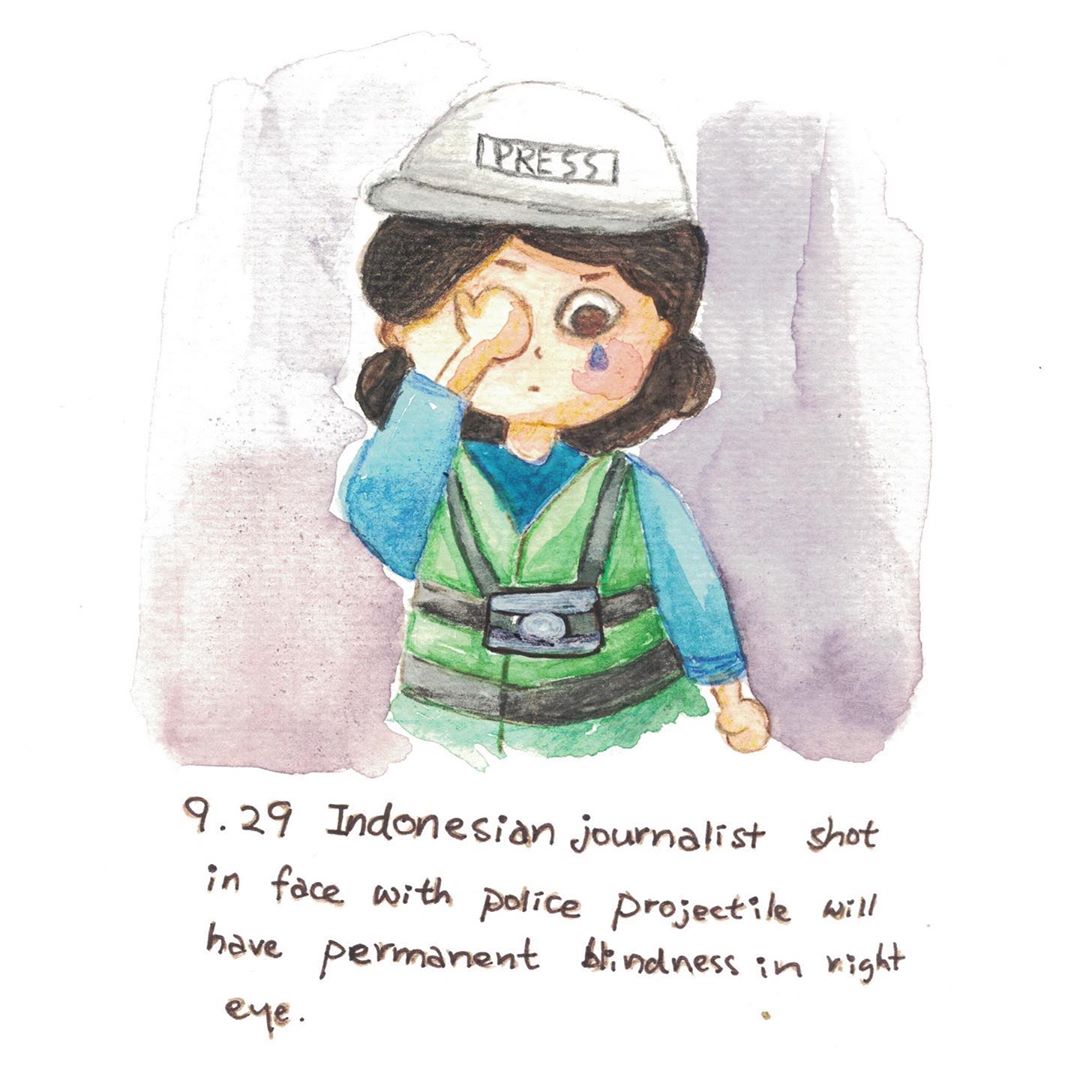 PRESS
9.29 Indonesian journalist shot
in face with police projectile will
have permanent blindness in right
eye.